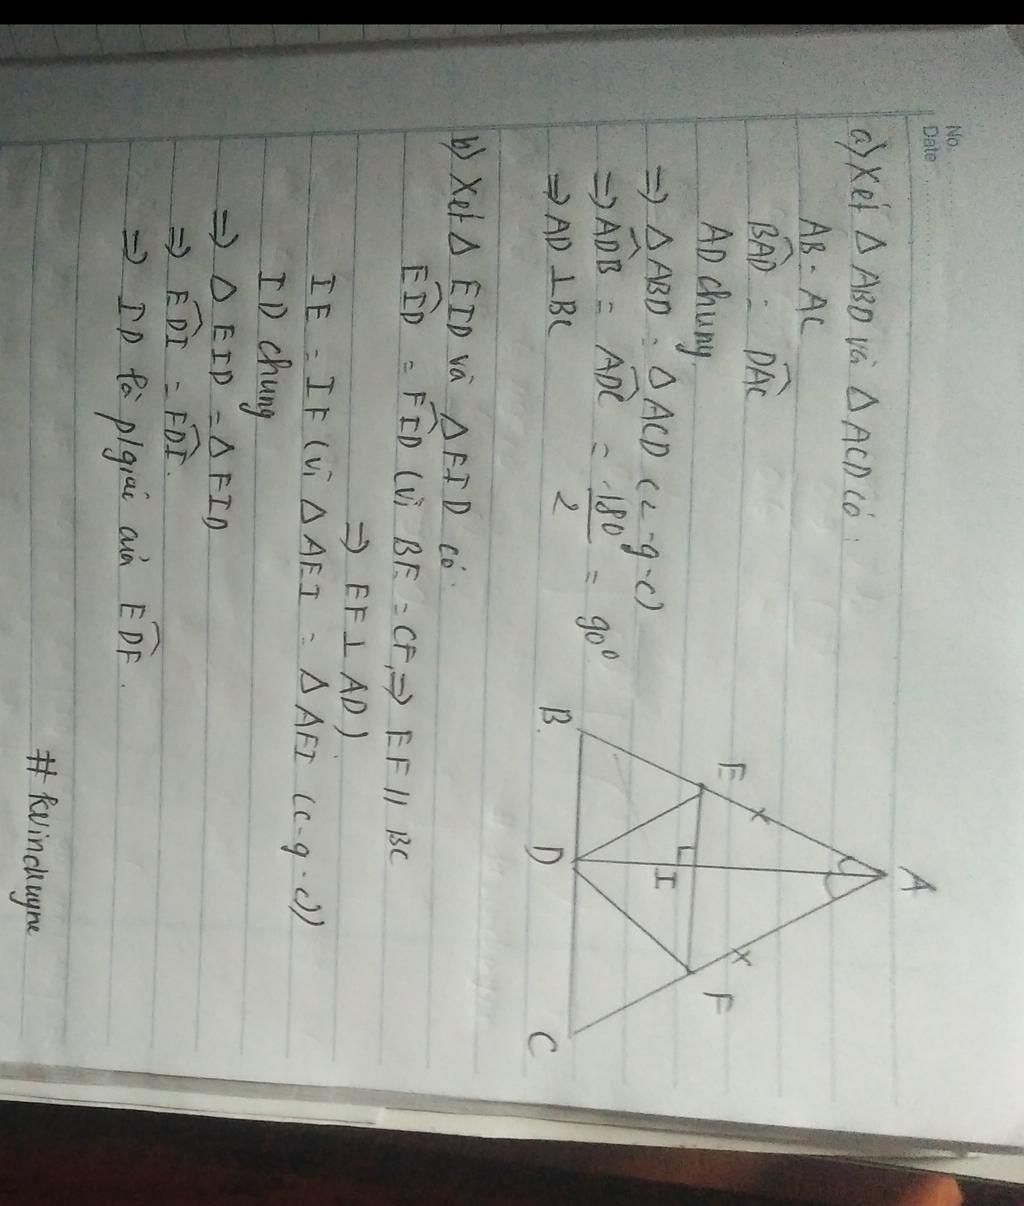 No.
Date
a) Xét Δ ABD và Δ ACD có:
AB = AC
BAD = DAC
AD chung
=> Δ ABD = Δ ACD (c-g-c)
=> ADB = ADC = 180/2 = 90°
=> AD ⊥ BC
A
E
F
I
B
D
C
b) Xét Δ EID và Δ FID có:
EID = FID (vì BE = CF, => EF // BC
=> EF ⊥ AD)
IE = IF (vì Δ AEI = Δ AFI (c-g-c))
ID chung
=> Δ EID = Δ FID
=> EDI = FDI.
=> ID là p/giác của EDF.